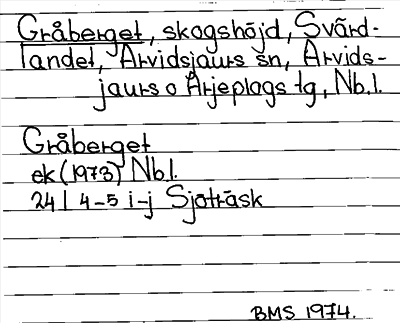 Gråberget, skogshöjd, Svärd-
landet, Arvidsjaurs sn, Arvids-
jaurs o Arjeplogs tg, Nb.l.
Gråberget
ek (1973) Nb.l.
24 I 4-5 i-j Sjöträsk
BMS 1974.